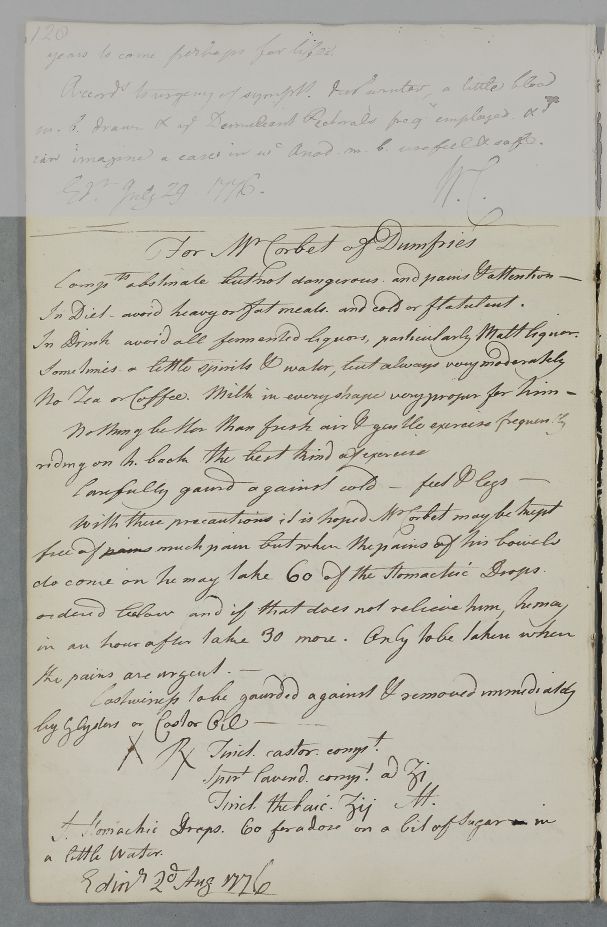 120
years to come perhaps for life.
Accord^g to urgency of sympt^s. a little blood
m. b. drawn & y^e Demulcent Pectorals freq^y employed &
can imagine a case in w^c Anod. m. b. usefull & safe.
Ed^r July 29 1776. W. C.
For Mr Corbet of Dumfries
Comp^ts obstinate but not dangerous. and pains & attention —
In Diet - avoid heavy or fat meals. and cold or flatulent.
In Drink avoid all fermented liquors, particularly Malt liquor.
Sometimes a little spirits & water, but always very moderately
No Tea or Coffee. Milk in every shape very proper for him —
Nothing better than fresh air & gentle exercise frequently
riding on h. back the best kind of exercise
Carefully gaurd against cold — feet & legs —
With these precautions it is hoped Mr Corbet may be kept
free of pains much pain but when the pains of his bowels
do come on he may take 60 of the Stomachic Drops
ordered below and if that does not relieve him, he may
in an hour after take 30 more. Only to be taken when
the pains are urgent. —
Costiveness to be gaurded against & removed immediately
by Glysters or Castor Oil —
X ℞ Tinct. castor. comp^t.
Spir^t Lavend. comp^t. a̅d̅ ʒj
Tinct. thebaic. ʒij M.
f. Stomachic Drops. 60 for a dose on a bit of Sugar in
a little Water.
Edin^r 2^d Aug 1776